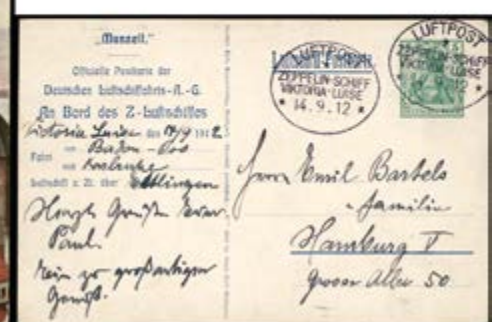 „Manzell."
Offizielle Postkarte der
Deutschen Luftschiffahrts-A.-G.
An Bord des Z-Luftschiffes
Victoria Luise den 14/9 1912
Fahrt von Baden-Oos
nach Karlsruhe
Luftschiff z. Zt. über Ettlingen
Herzl. Grüße Euer
Paul.
Rein zu großartiger
Genuß.
LUFTPOST
ZEPPELIN-SCHIFF
VIKTORIA-LUISE
* 14.9.12 *
LUFTPOST
ZEPPELIN-SCHIFF
VIKTORIA-LUISE
12 *
Herrn Emil Bartels
Familie
Hamburg V
Grosse Allee 50.